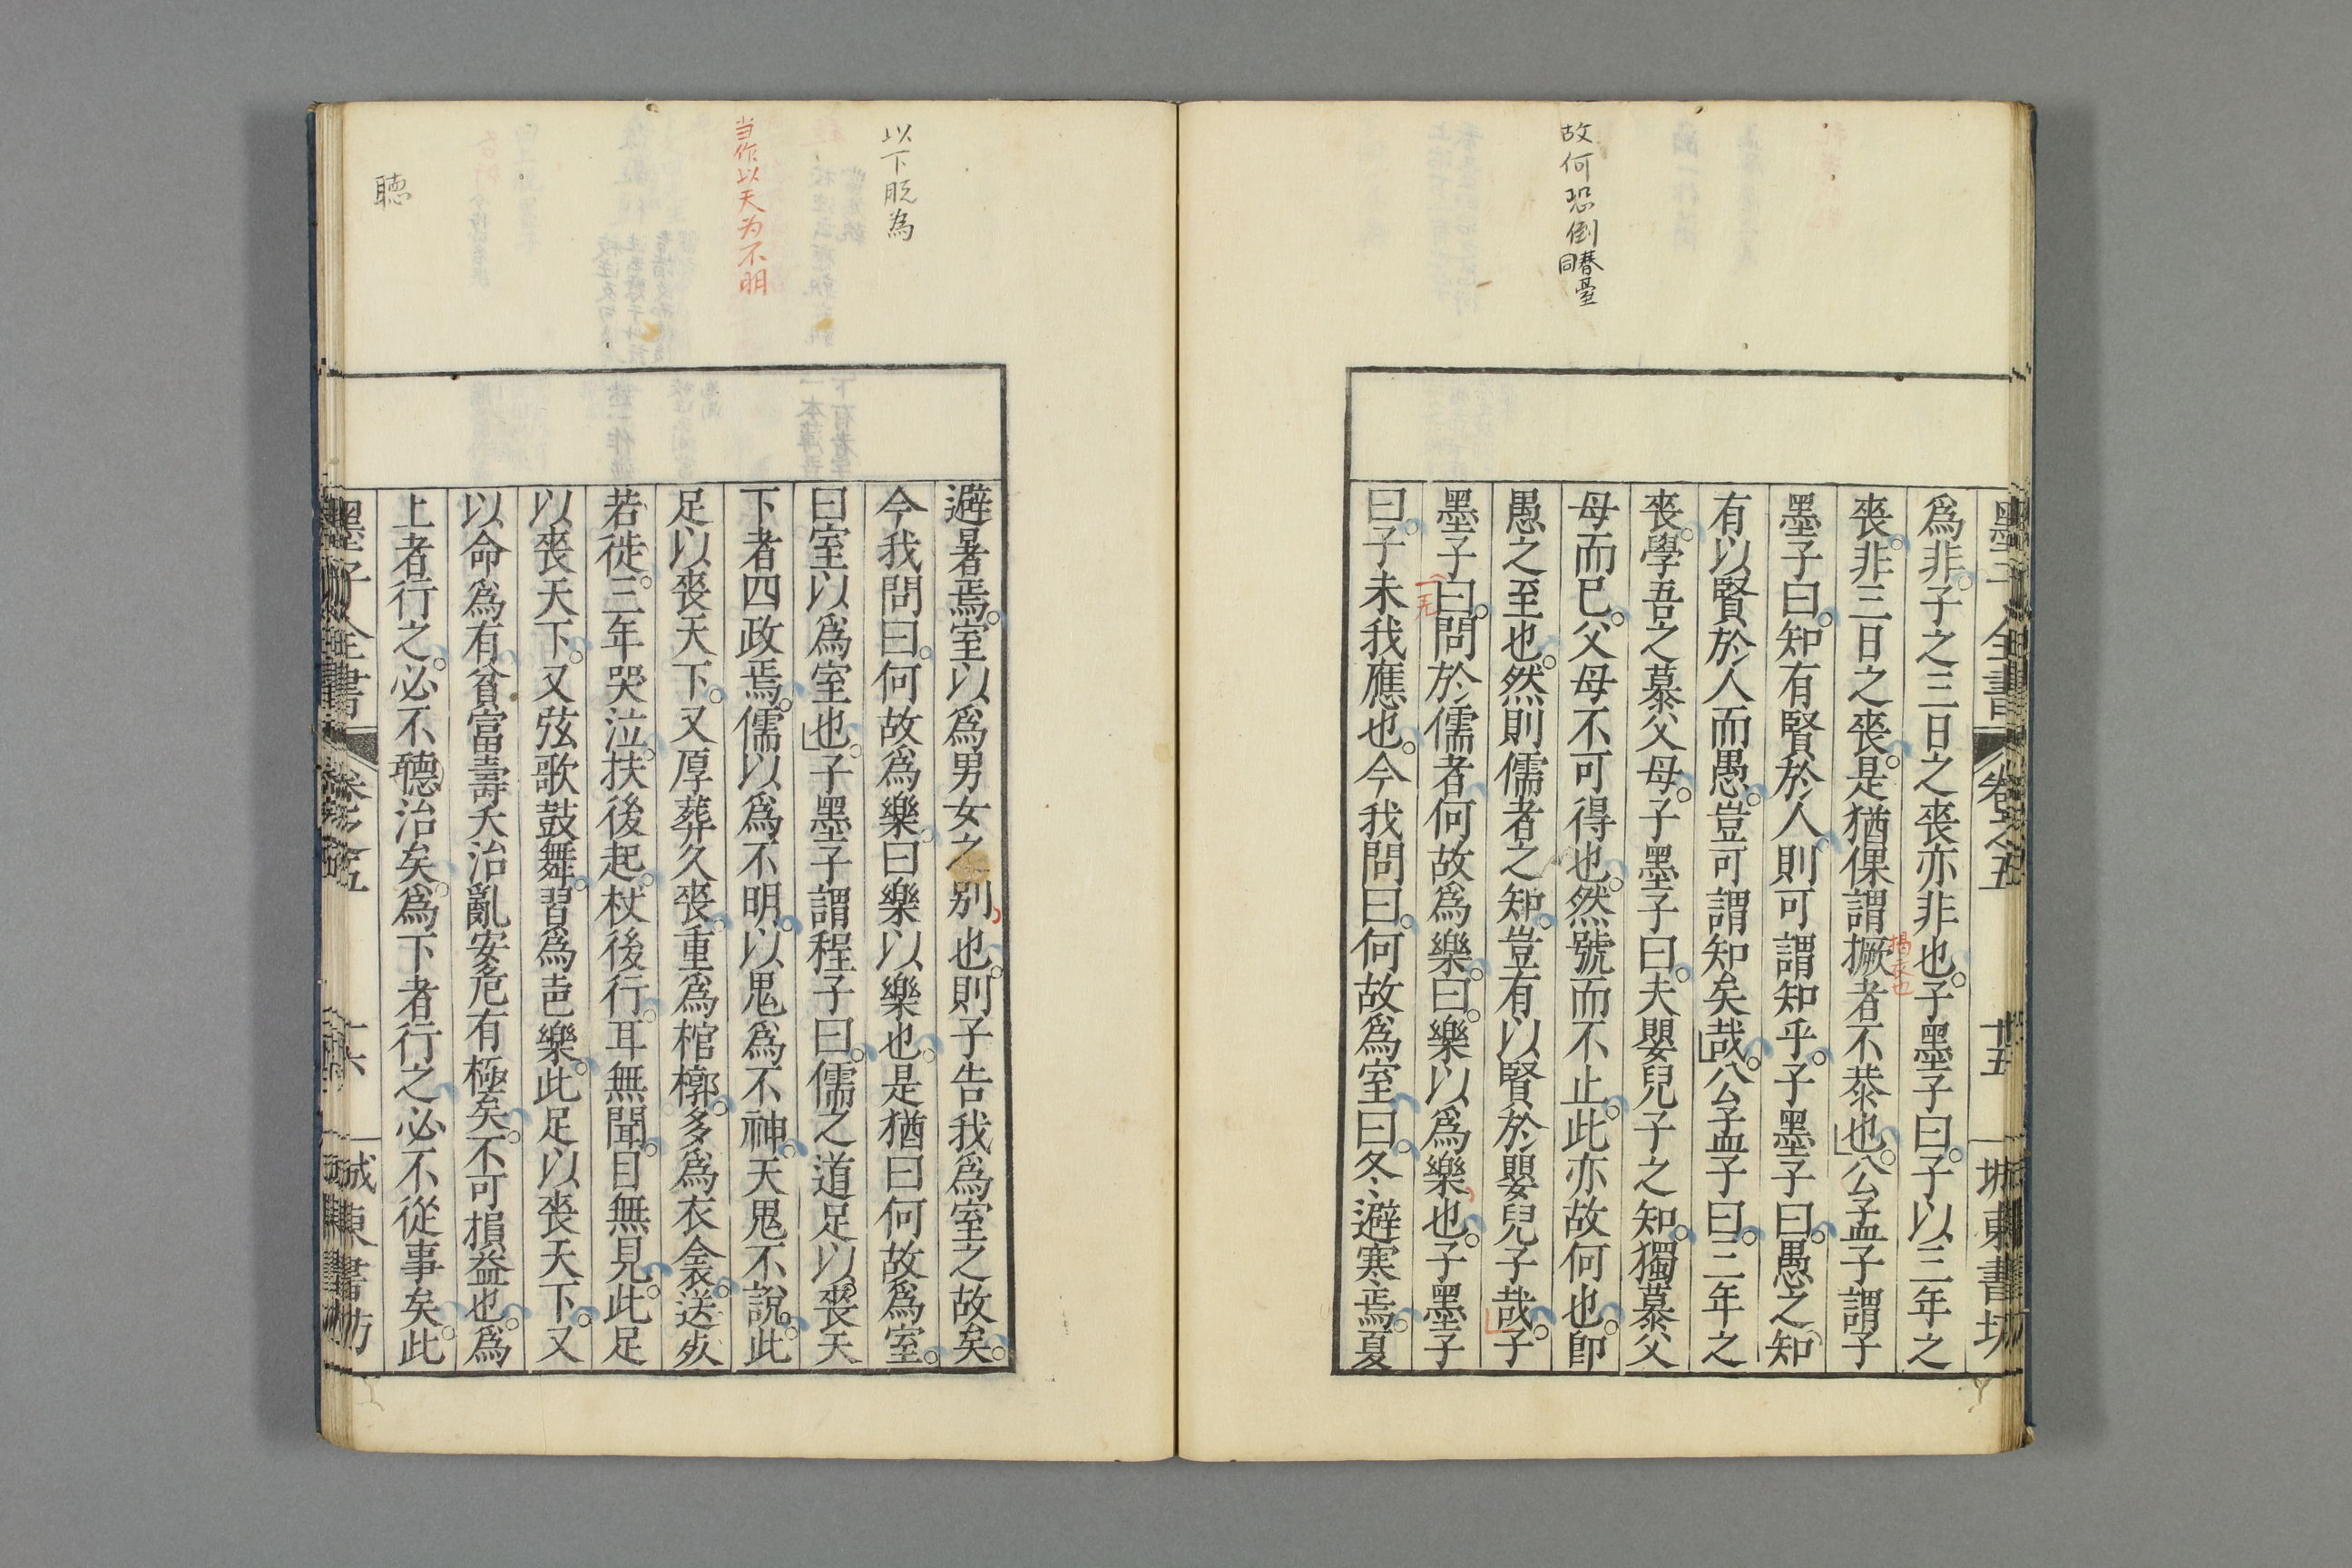 故何恐倒
同朞臺
墨子全書
卷之五
十五
城東書坊
爲非。子之三日之喪亦非也。子墨子曰。子以三年之
喪。非三日之喪。是猶倮謂撅者不恭也。公孟子謂子
揭衣也
墨子曰。知有賢於人。則可謂知乎。子墨子曰。愚之知
有以賢於人而愚。豈可謂知矣哉。公孟子曰。三年之
喪。學吾之慕父母。子墨子曰。夫嬰兒子之知。獨慕父
母而已。父母不可得也。然號而不止。此亦故何也。卽
愚之至也。然則儒者之知。豈有以賢於嬰兒子哉。子
墨子曰。問於儒者。何故爲樂。曰。樂以爲樂也。子墨子
一无
曰。子未我應也。今我問曰。何故爲室。曰。冬避寒焉。夏
以下脱為
当作以天为不明
聴
避暑焉。室以爲男女之別也。則子告我爲室之故矣。
今我問曰。何故爲樂。曰樂以樂也。是猶曰何故爲室。
曰室以爲室也。子墨子謂程子曰。儒之道足以喪天
下者四政焉。儒以爲不明。以鬼爲不神。天鬼不說。此
足以喪天下。又厚葬久喪。重爲棺槨。多爲衣衾。送死
若徙。三年哭泣。扶後起。杖後行。耳無聞。目無見。此足
以喪天下。又弦歌鼓舞。習爲声樂。此足以喪天下。又
以命爲有。貧富壽夭治亂安危有極矣。不可損益也。爲
上者行之。必不聽治矣。爲下者行之。必不從事矣。此
墨子全書
卷之五
十六
城東書坊